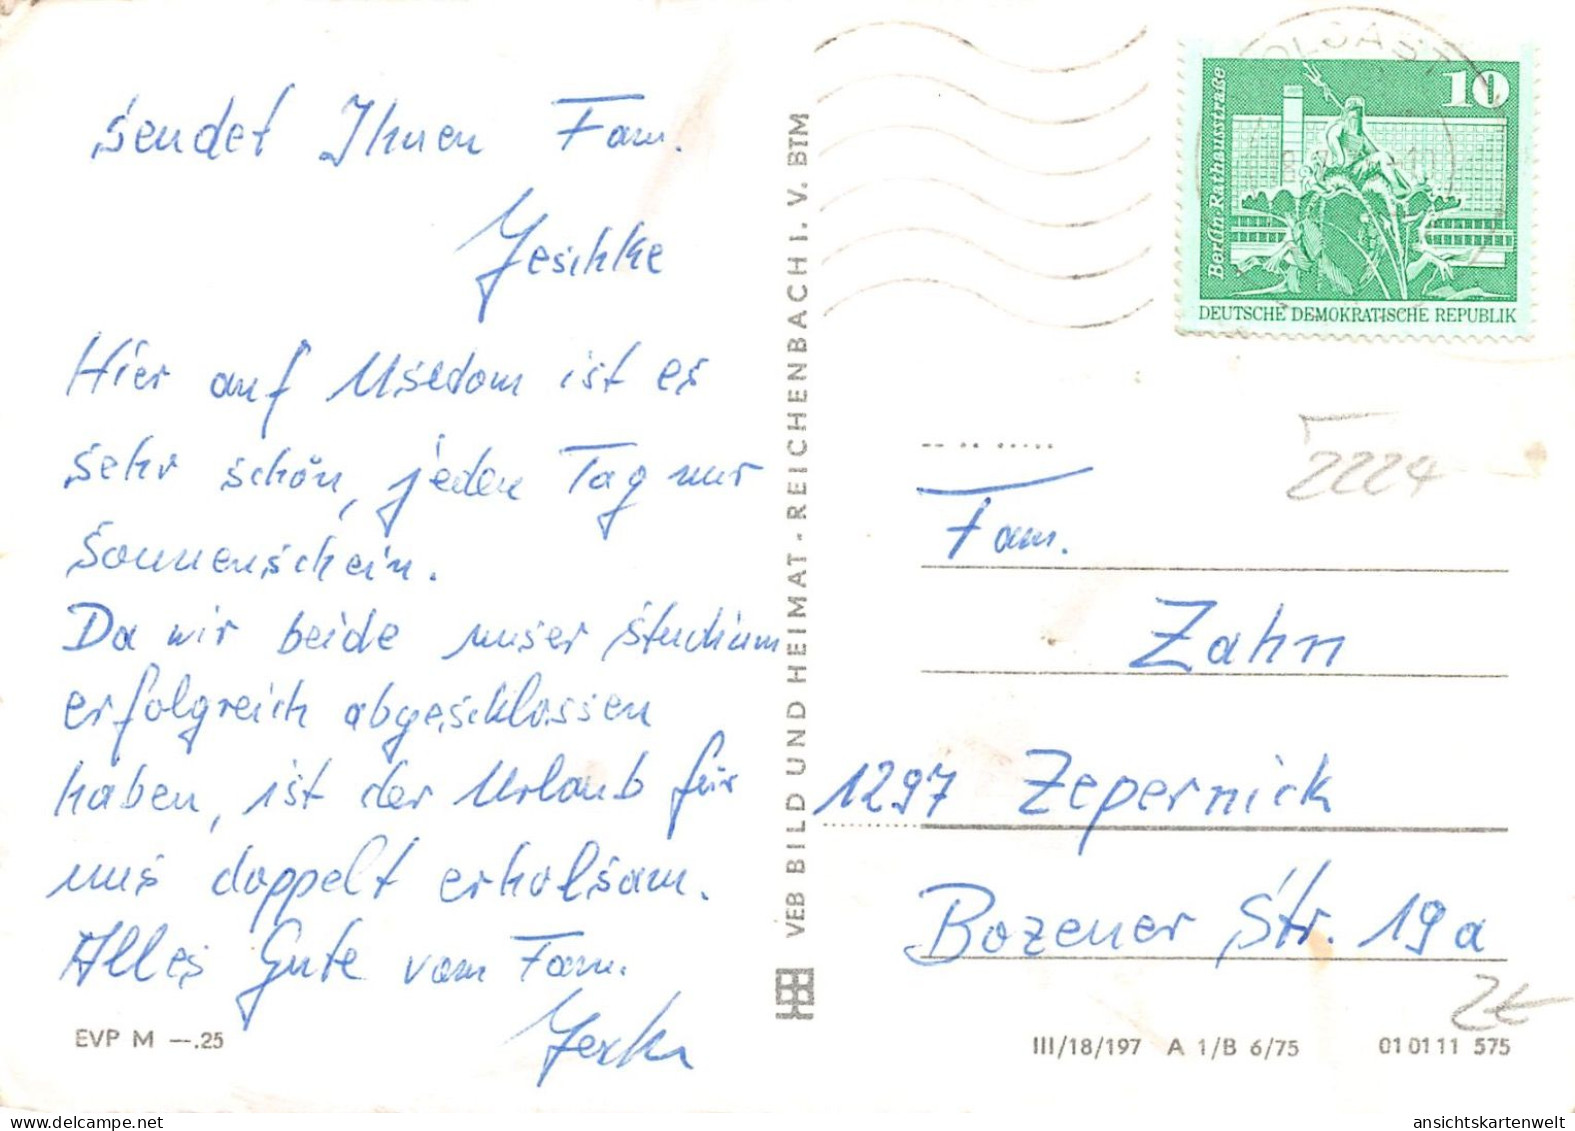 sendet Ihnen Fam.
Jeschke
Hier auf Usedom ist es
sehr schön, jeden Tag nur
Sonnenschein.
Da wir beide unser Studium
erfolgreich abgeschlossen
haben, ist der Urlaub für
uns doppelt erholsam.
Alles Gute vom Fam.
EVP M —.25
VEB BILD UND HEIMAT · REICHENBACH I. V. BTM
10
Berlin, Rathausstraße
DEUTSCHE DEMOKRATISCHE REPUBLIK
2224
Fam.
Zahn
1297 Zepernick
Bozener Str. 19a
2€
III/18/197 A 1/B 6/75 01 01 11 575
ansichtskartenwelt